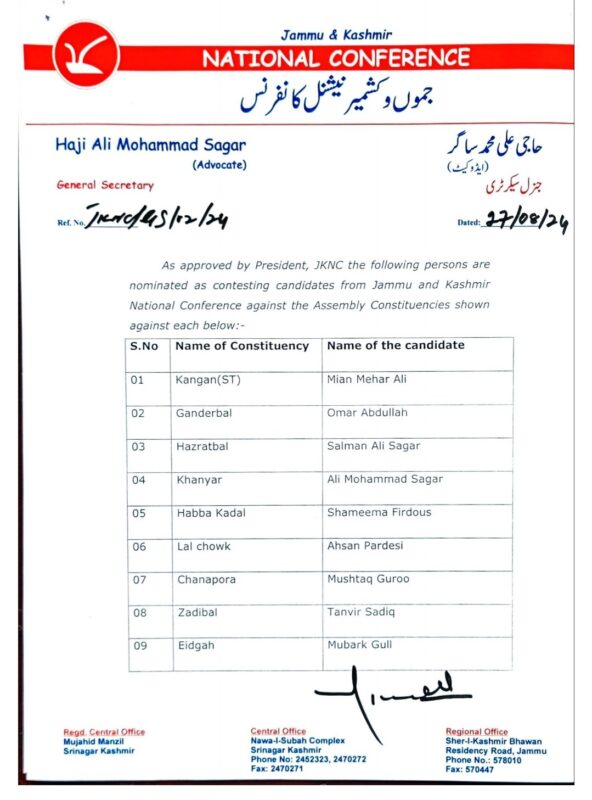 Jammu & Kashmir
NATIONAL CONFERENCE
جموں و کشمیر نیشنل کانفرنس
Haji Ali Mohammad Sagar
(Advocate)
General Secretary
حاجی علی محمد ساگر
(ایڈوکیٹ)
جنرل سیکرٹری
Ref. No. JKNC/GS/02/24
Dated: 27/08/24
As approved by President, JKNC the following persons are
nominated as contesting candidates from Jammu and Kashmir
National Conference against the Assembly Constituencies shown
against each below:-
S.No Name of Constituency Name of the candidate
01 Kangan(ST) Mian Mehar Ali
02 Ganderbal Omar Abdullah
03 Hazratbal Salman Ali Sagar
04 Khanyar Ali Mohammad Sagar
05 Habba Kadal Shameema Firdous
06 Lal chowk Ahsan Pardesi
07 Chanapora Mushtaq Guroo
08 Zadibal Tanvir Sadiq
09 Eidgah Mubark Gull
Regd. Central Office
Mujahid Manzil
Srinagar Kashmir
Central Office
Nawa-I-Subah Complex
Srinagar Kashmir
Phone No: 2452323, 2470272
Fax: 2470271
Regional Office
Sher-I-Kashmir Bhawan
Residency Road, Jammu
Phone No.: 578010
Fax: 570447